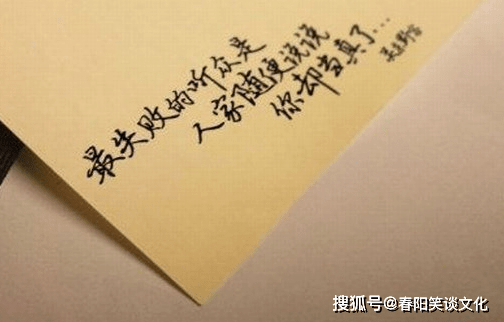 最失败的听众是
人家随便说说
你却当真了...
搜狐号@春阳笑谈文化